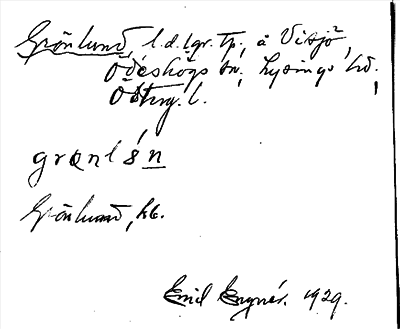 Grönlund, l.d. lgr. tp., å Visjö,
Ödeshögs sn. Lysings hd.
Östergl.
grɶnlś̱n
Grönlund, hb.
Emil 1929.